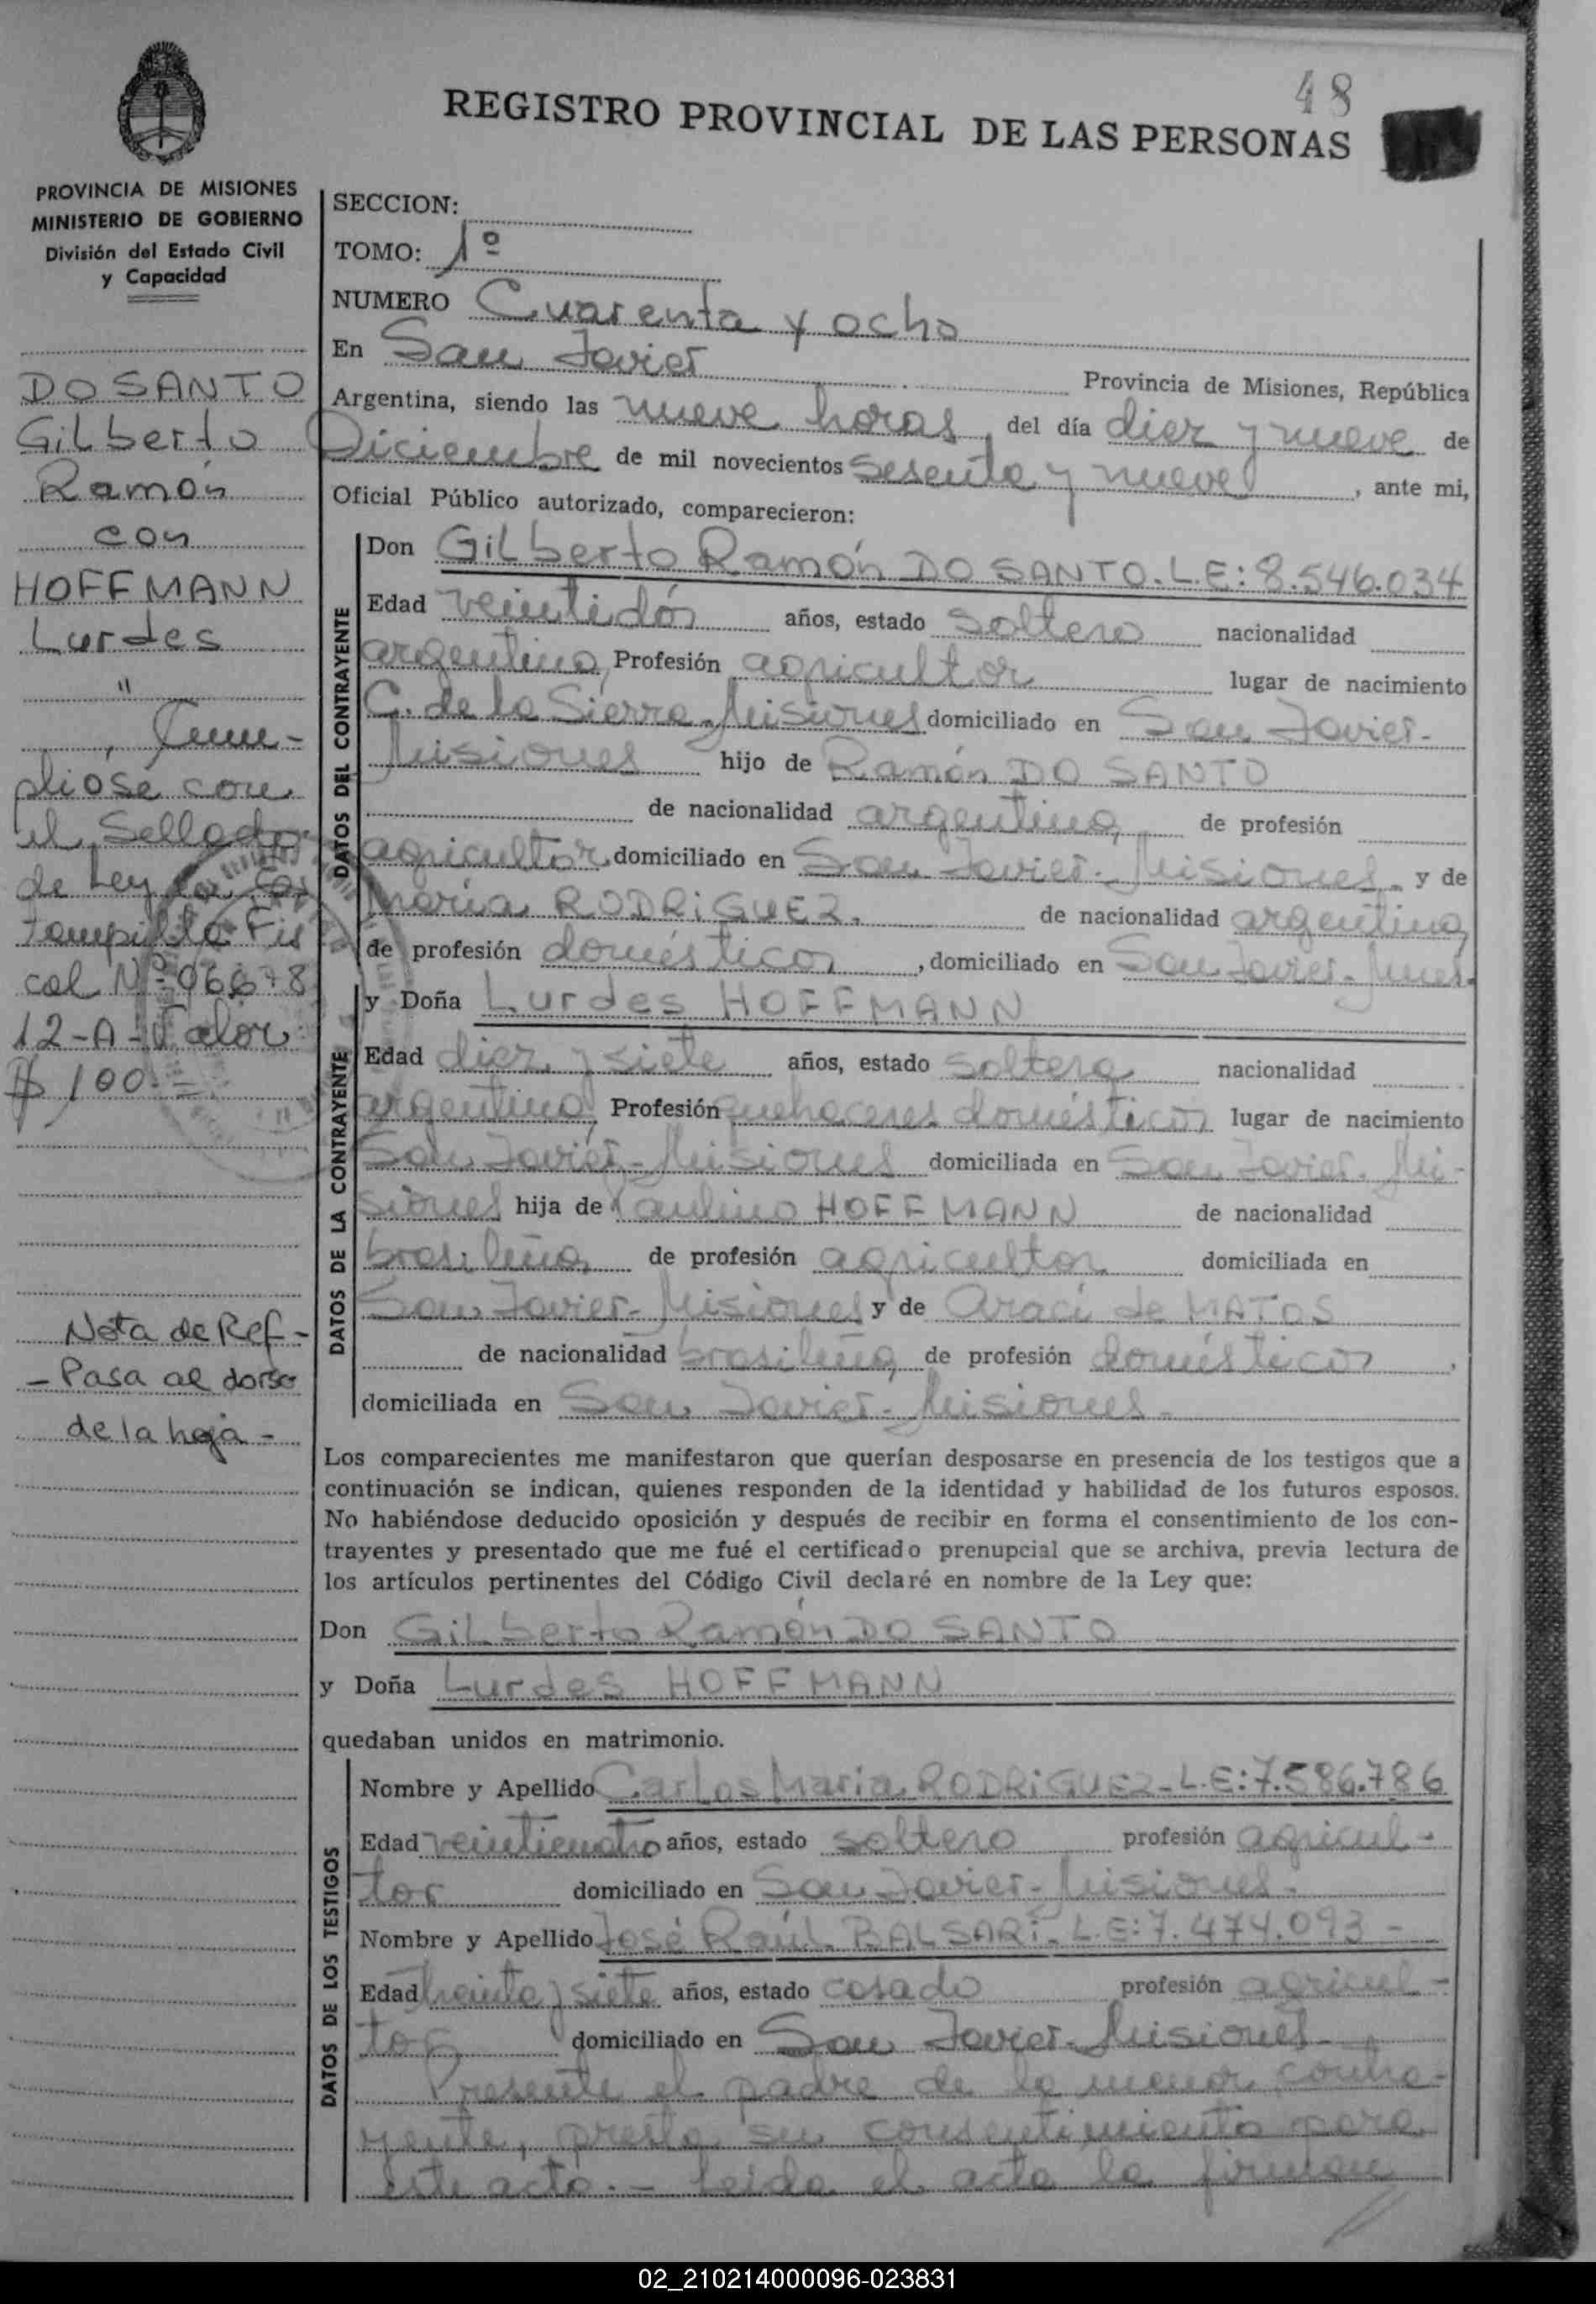 48
REGISTRO PROVINCIAL DE LAS PERSONAS
PROVINCIA DE MISIONES
MINISTERIO DE GOBIERNO
División del Estado Civil
y Capacidad
DO SANTO
Gilberto
Ramón
con
HOFFMANN
Lurdes
"
Cum-
plióse con
el Sellado
de Ley en Es
tampilla Fis
cal Nº 06678
12-A-Valor
$ 100.-
Nota de Ref-
- Pasa al dorso
de la hoja -
SECCION:
TOMO: 1º
NUMERO Cuarenta y ocho
En San Javier Provincia de Misiones, República
Argentina, siendo las nueve horas, del día diez y nueve de
Diciembre de mil novecientos Sesenta y nueve, ante mi,
Oficial Público autorizado, comparecieron:
DATOS DEL CONTRAYENTE
Don Gilberto Ramón DO SANTO. L.E: 8.546.034
Edad veintidós años, estado soltero nacionalidad
argentina, Profesión agricultor lugar de nacimiento
C. de la Sierra-Misiones domiciliado en San Javier-
Misiones hijo de Ramón DO SANTO
de nacionalidad argentina, de profesión
agricultor domiciliado en San Javier-Misiones. y de
María RODRIGUEZ. de nacionalidad argentina,
de profesión domésticos, domiciliado en San Javier-Mnes.
DATOS DE LA CONTRAYENTE
y Doña Lurdes HOFFMANN
Edad diez y siete años, estado soltera nacionalidad
argentina, Profesión quehaceres domésticos lugar de nacimiento
San Javier-Misiones domiciliada en San Javier-Mi-
siones hija de Paulino HOFFMANN de nacionalidad
brasileña, de profesión agricultor domiciliada en
San Javier-Misiones y de Araci de MATOS
de nacionalidad brasileña, de profesión domésticos,
domiciliada en San Javier-Misiones-
Los comparecientes me manifestaron que querían desposarse en presencia de los testigos que a
continuación se indican, quienes responden de la identidad y habilidad de los futuros esposos.
No habiéndose deducido oposición y después de recibir en forma el consentimiento de los con-
trayentes y presentado que me fué el certificado prenupcial que se archiva, previa lectura de
los artículos pertinentes del Código Civil declaré en nombre de la Ley que:
Don Gilberto Ramón DO SANTO
y Doña Lurdes HOFFMANN
quedaban unidos en matrimonio.
DATOS DE LOS TESTIGOS
Nombre y Apellido Carlos María RODRIGUEZ-L.E: 7.586.786
Edad veinticuatro años, estado soltero profesión agricul-
tor domiciliado en San Javier-Misiones-
Nombre y Apellido José Raúl BALSARI. L.E: 7.474.093-
Edad treinta y siete años, estado casado profesión agricul-
tor domiciliado en San Javier-Misiones-
Presente el padre de la menor contra-
yente, presta su consentimiento para
este acto.- Leída el acta la firman
02_210214000096-023831